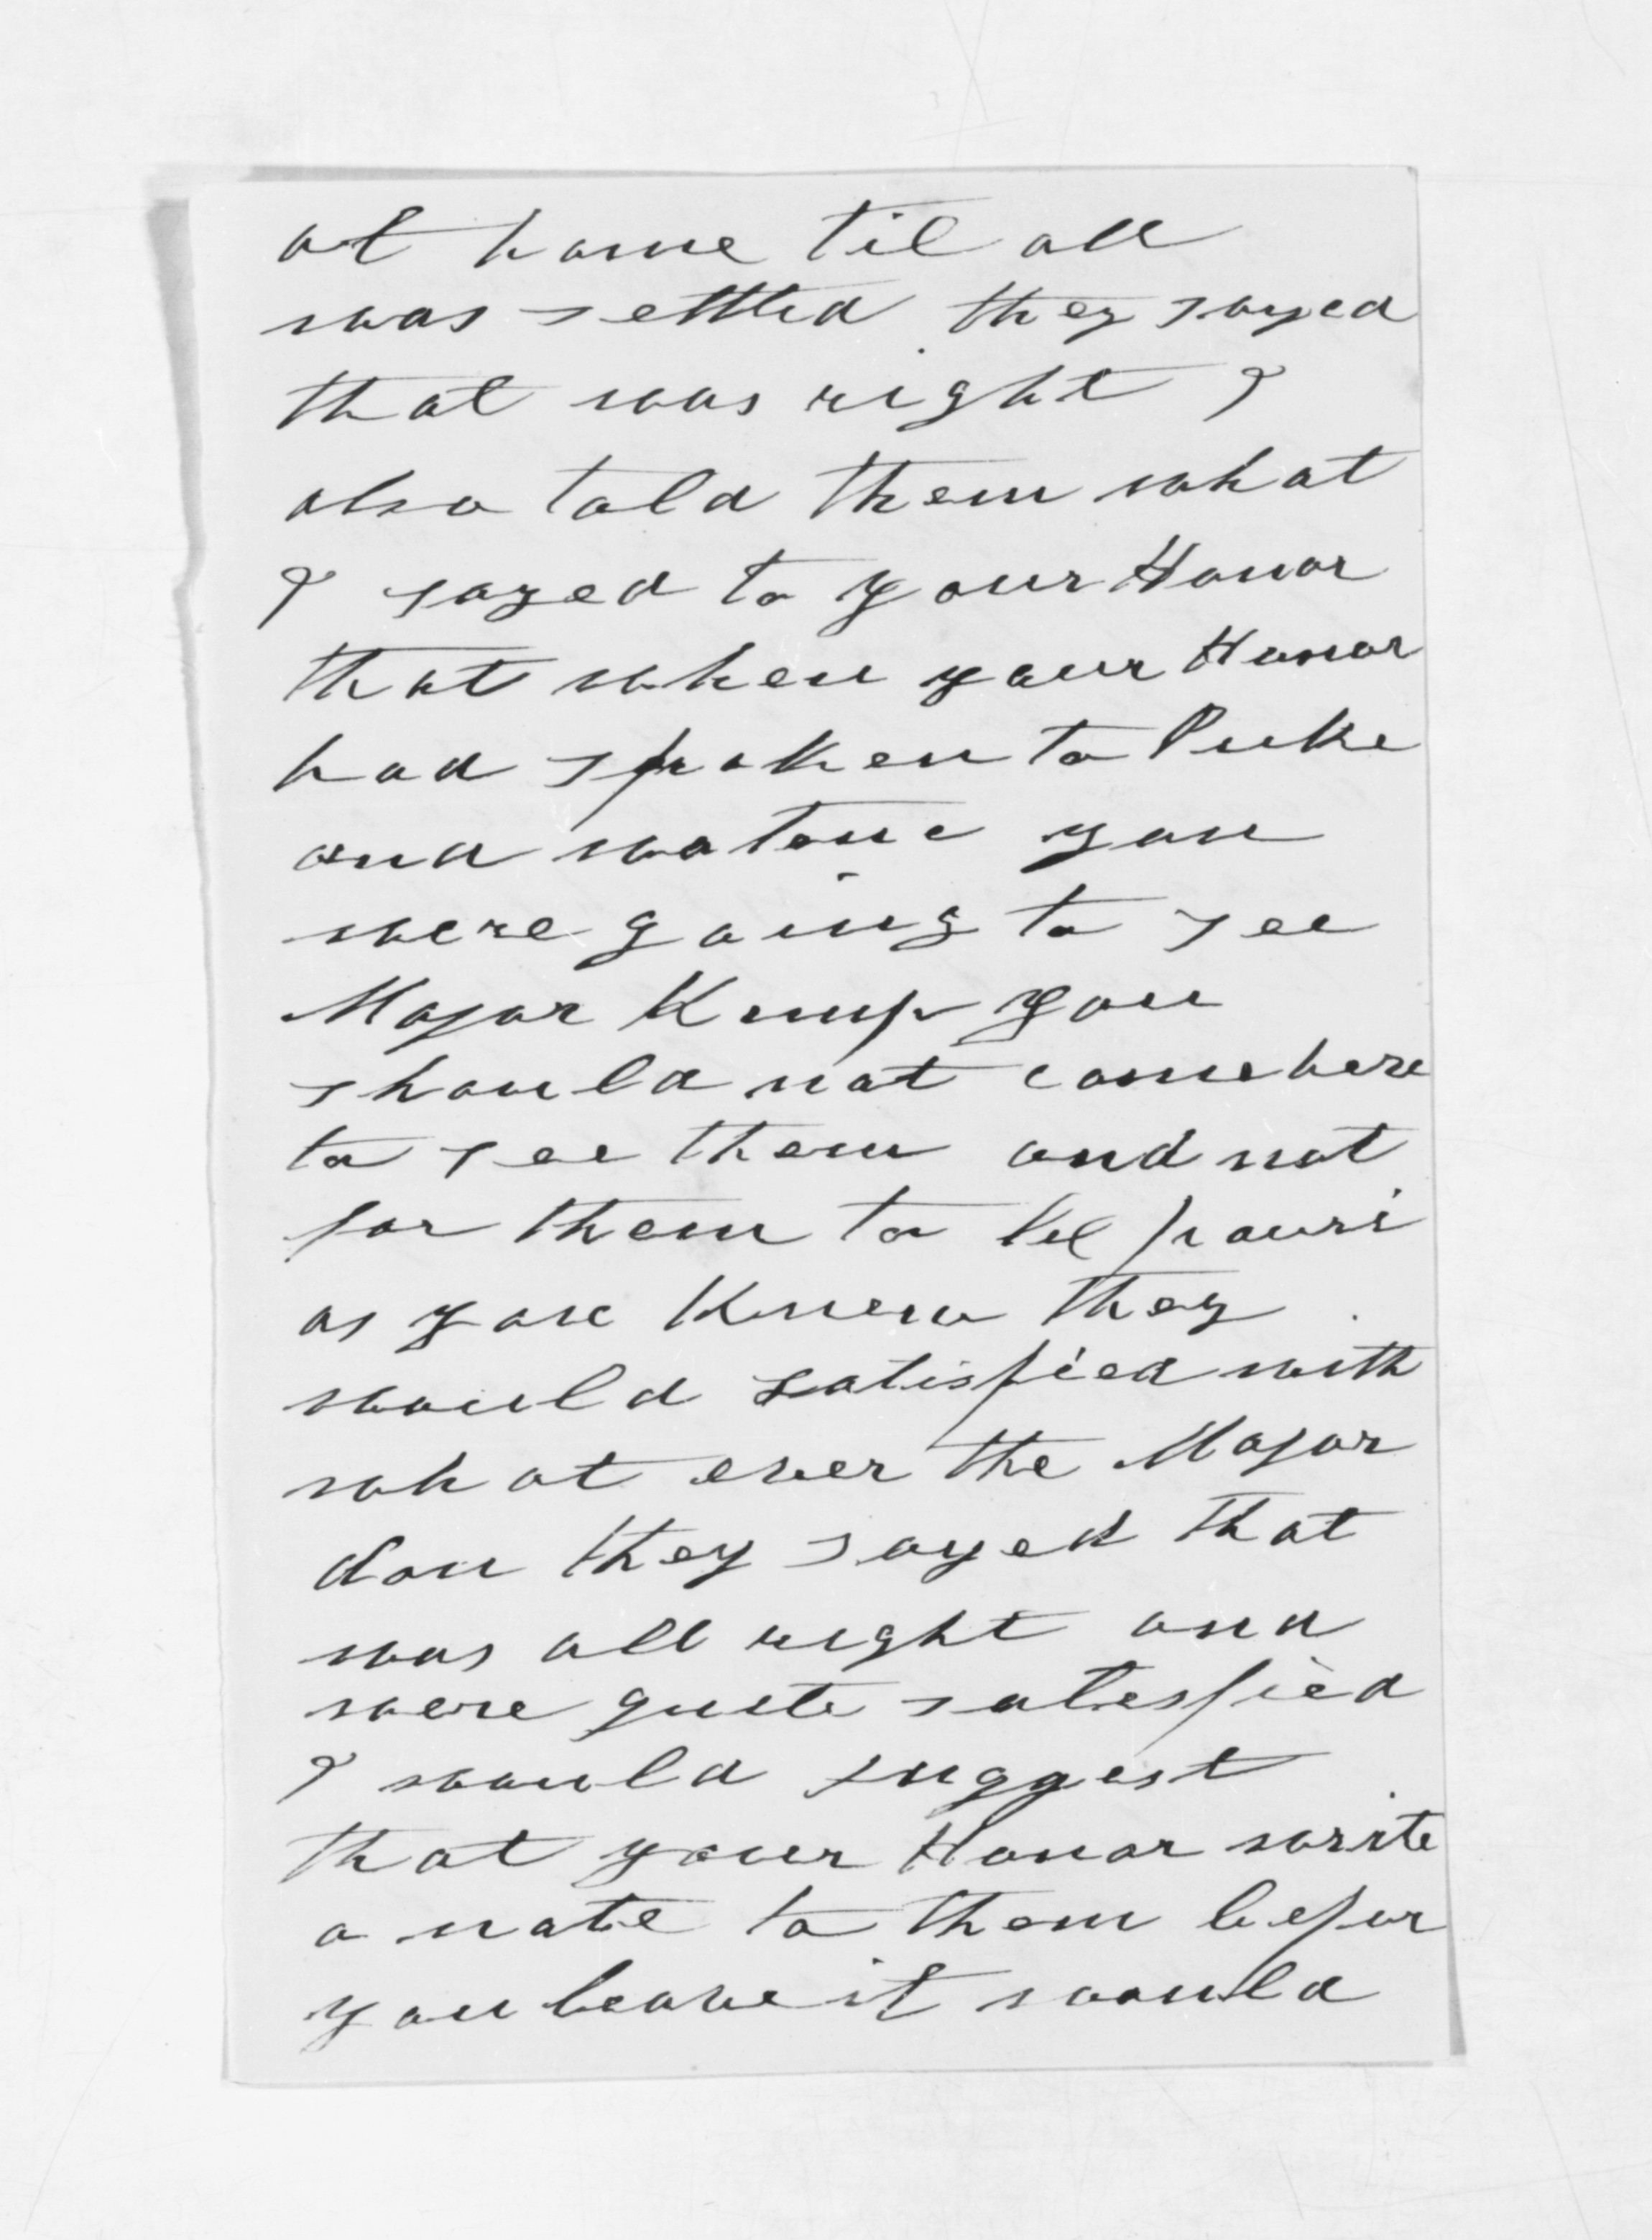 at home til all
was settled they sayed
that was right I
also told them what
I sayed to your Honor
that when your Honor
had spoken to Puke
and watene you
were going to see
Major Kemp you
should not come here
to see them and not
for them to be pouri
as you knew they
would satisfied with
what ever the Major
don they sayed that
was all right and
were quite satesfied
I would suggest
that your Honor write
a note to them befor
you leave it would